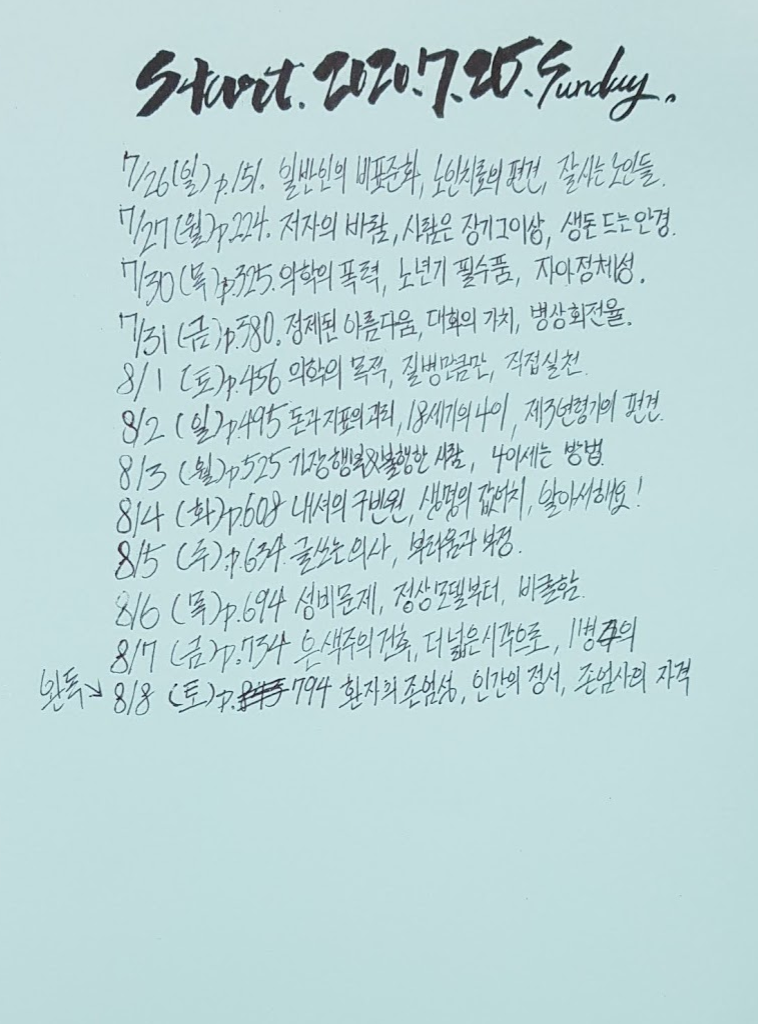 Start. 2020.7.25. Sunday.
7/26(일)p.151. 일반인의 비표준화, 노인치료의 편견, 잘사는 노인들.
7/27(월)p.224. 저자의 바람, 사람은 장기 그이상, 생돈 드는 안경.
7/30(목)p.325. 의학의 폭력, 노년기 필수품, 자아정체성.
7/31(금)p.380. 정제된 아름다움, 대화의 가치, 병상회전율.
8/1 (토)p.456 의학의 목적, 질병만큼만, 직접실천.
8/2 (일)p.495 돈과 지표의 괴리, 18세기의 나이, 제3연령기의 편견.
8/3 (월)p.525 가장 행복&불행한 사람, 나이세는 방법.
8/4 (화)p.608 내셔의 구빈원, 생명의 값어치, 알아서해요!
8/5 (수).p.634. 글쓰는 의사, 부러움과 부정.
8/6 (목)p.694 성비문제, 정상모델부터, 바클함.
8/7 (금)p.734 은색주의 건축, 더 넓은 시각으로, 11형의
완독↘ 8/8 (토)p.794 환자의 존엄성, 인간의 정서, 존엄사의 자격